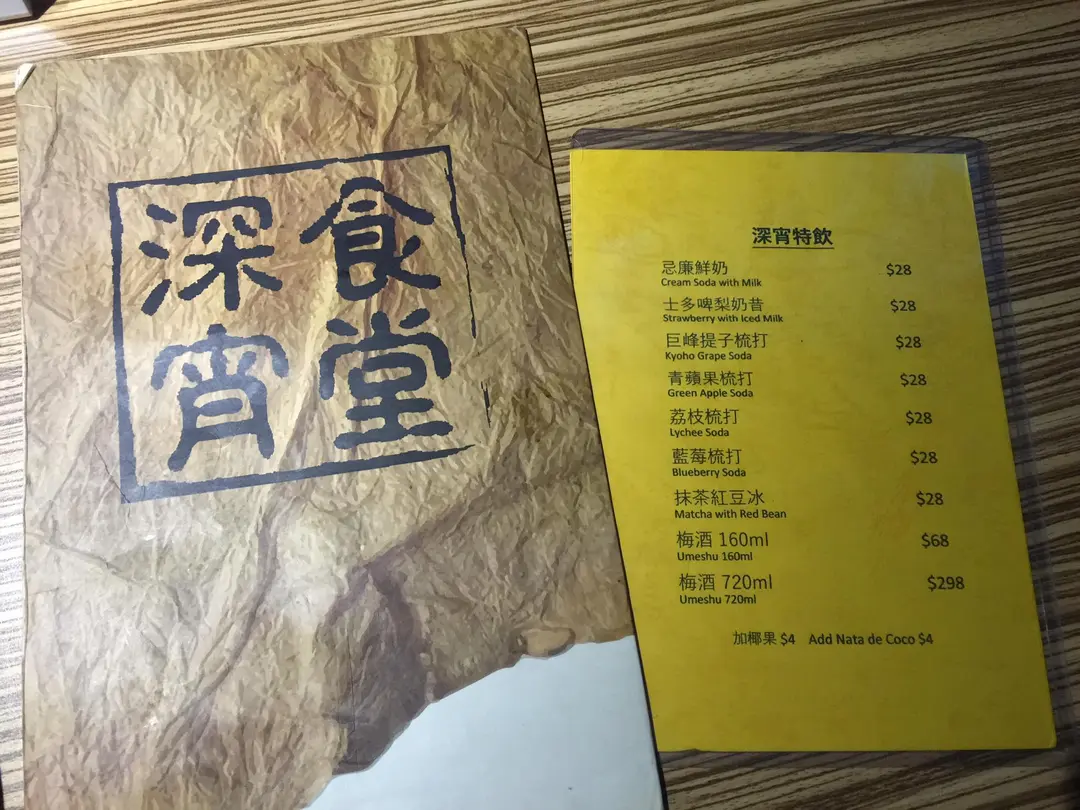 深宵
食堂
深宵特飲
忌廉鮮奶 $28
Cream Soda with Milk
士多啤梨奶昔 $28
Strawberry with Iced Milk
巨峰提子梳打 $28
Kyoho Grape Soda
青蘋果梳打 $28
Green Apple Soda
荔枝梳打 $28
Lychee Soda
藍莓梳打 $28
Blueberry Soda
抹茶紅豆冰 $28
Matcha with Red Bean
梅酒 160ml $68
Umeshu 160ml
梅酒 720ml $298
Umeshu 720ml
加椰果 $4 Add Nata de Coco $4